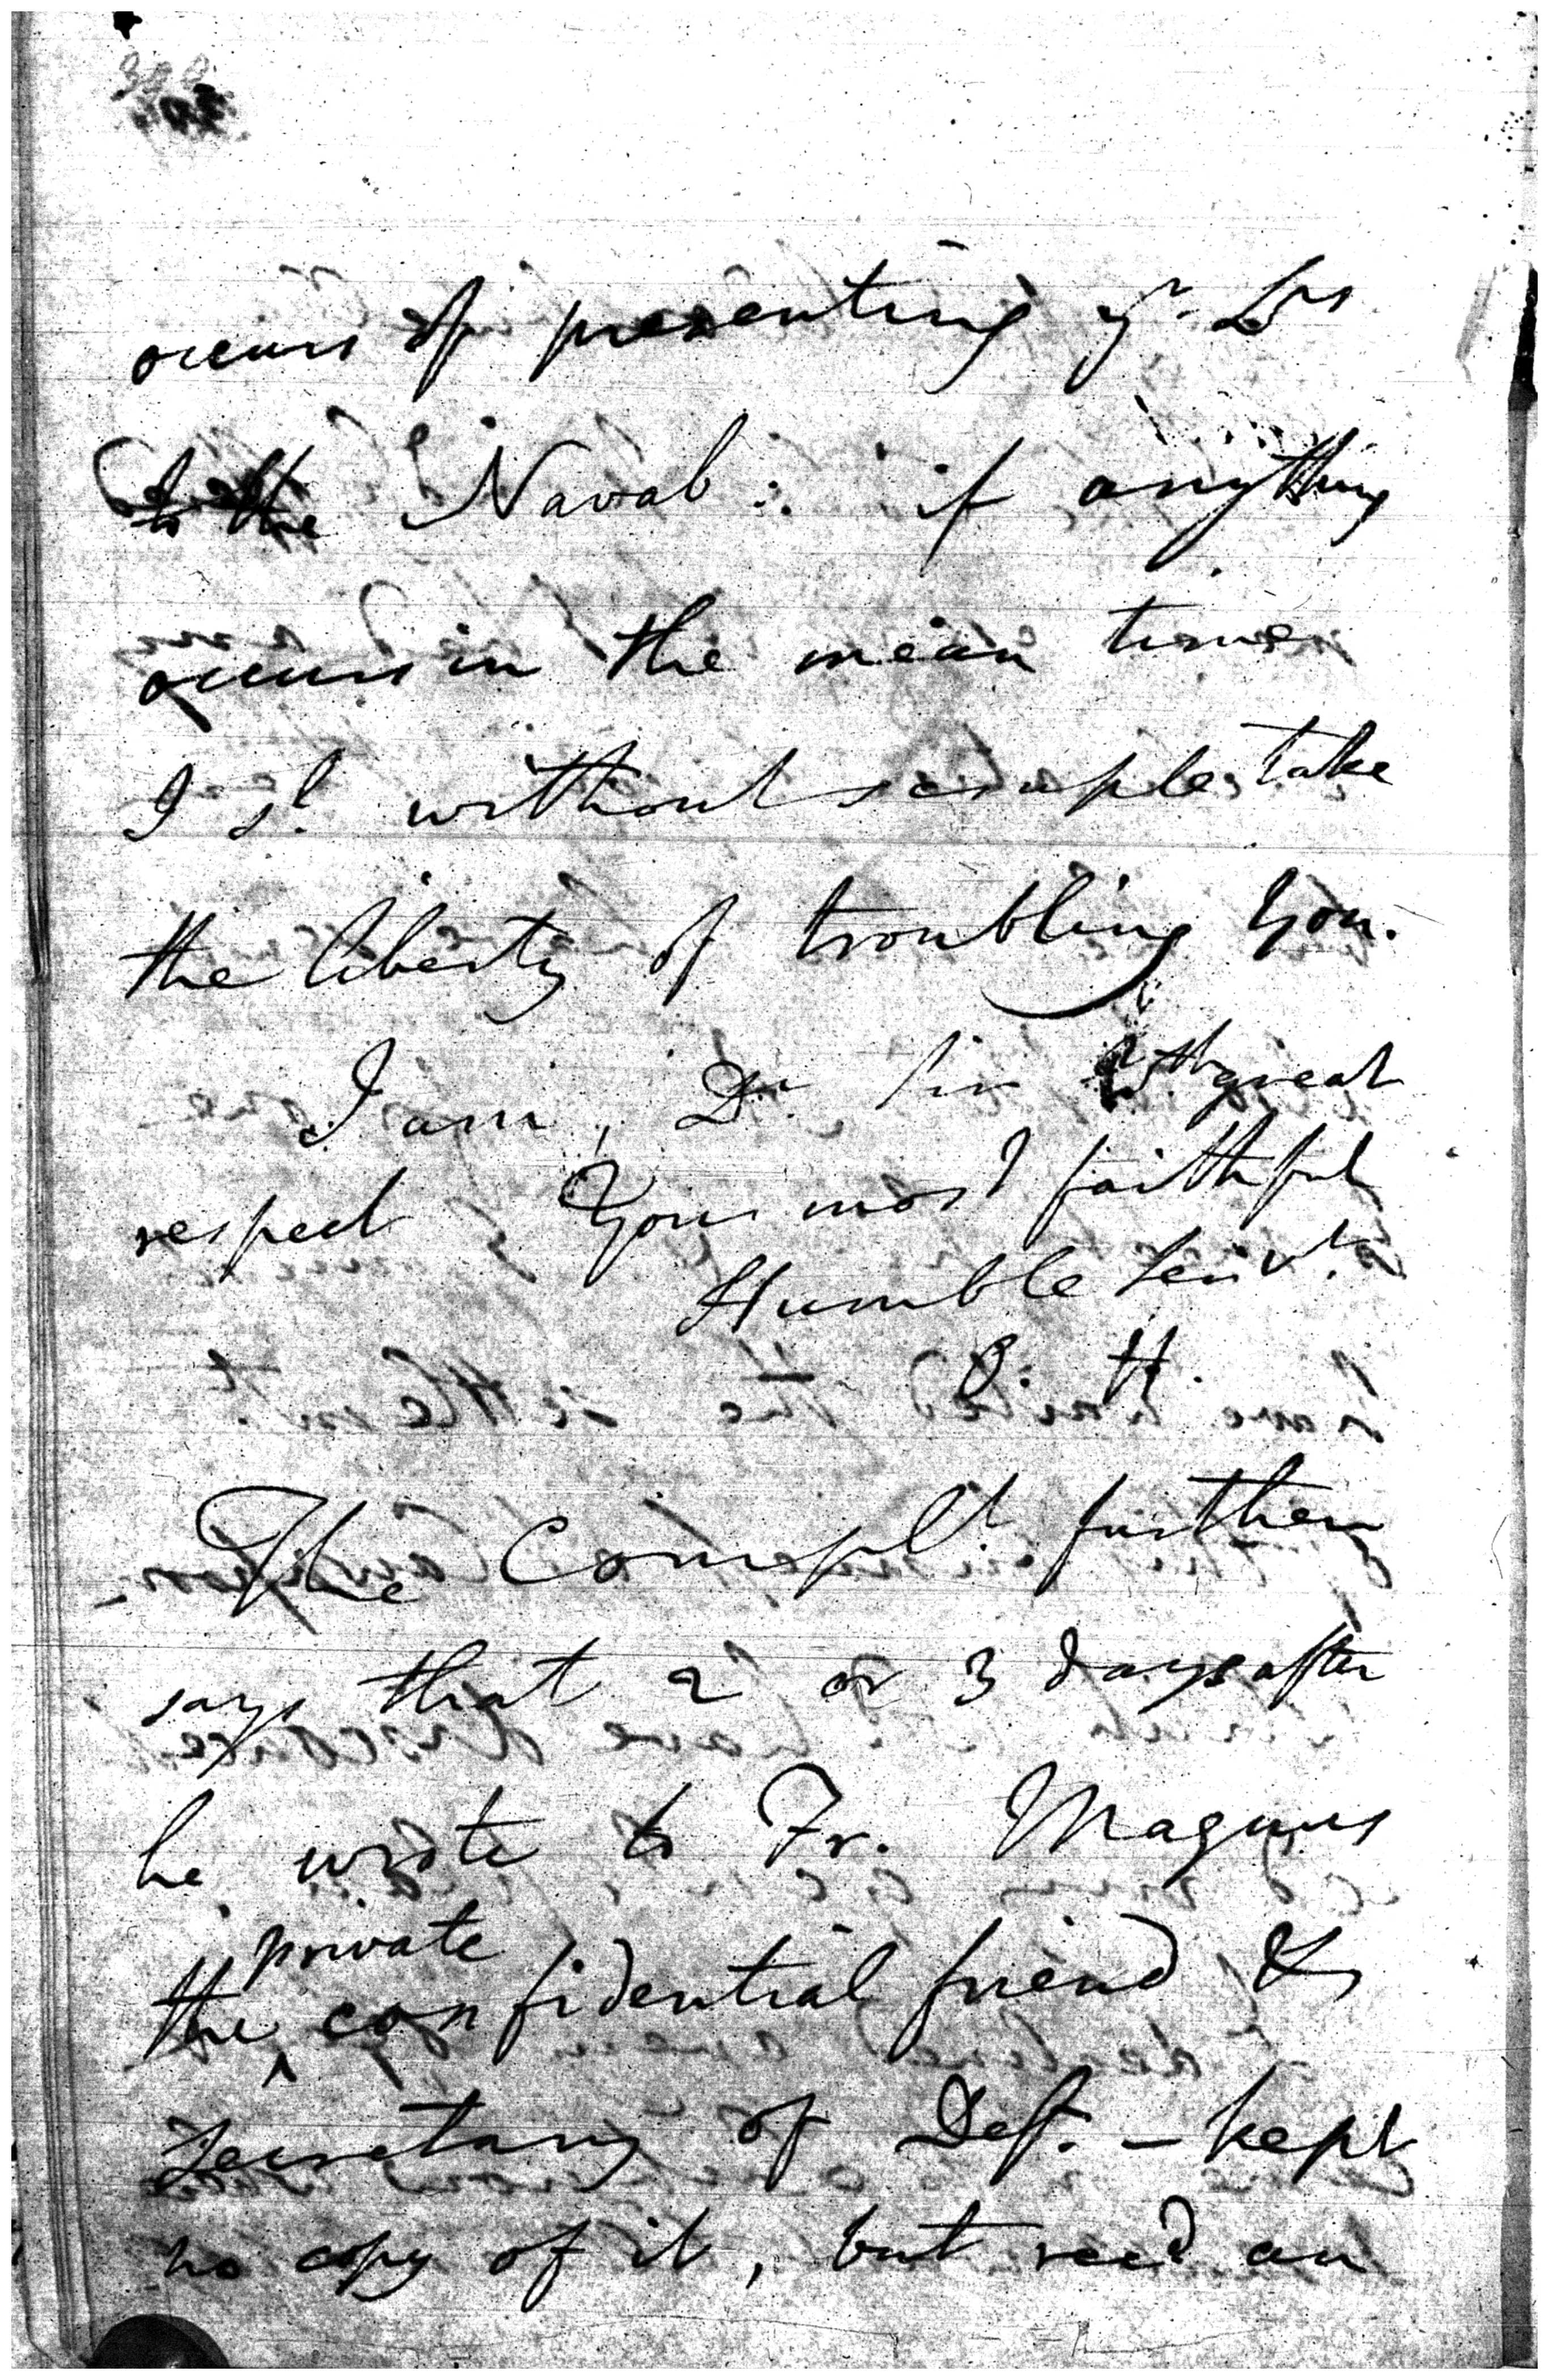 occurs of presenting yr. Lrs
to the Navab: if anything
occurs in the mean time
I sl. without scruple take
the liberty of troubling You.
I am, Dr. Sir wth great
respect Your most faithful
Humble Servt.
H.
The Complt. further
says that 2 or 3 days after
he wrote to Fr. Magnus
private
the confidential friend &
Secretary of Deft. - kept
no copy of it, but recd an